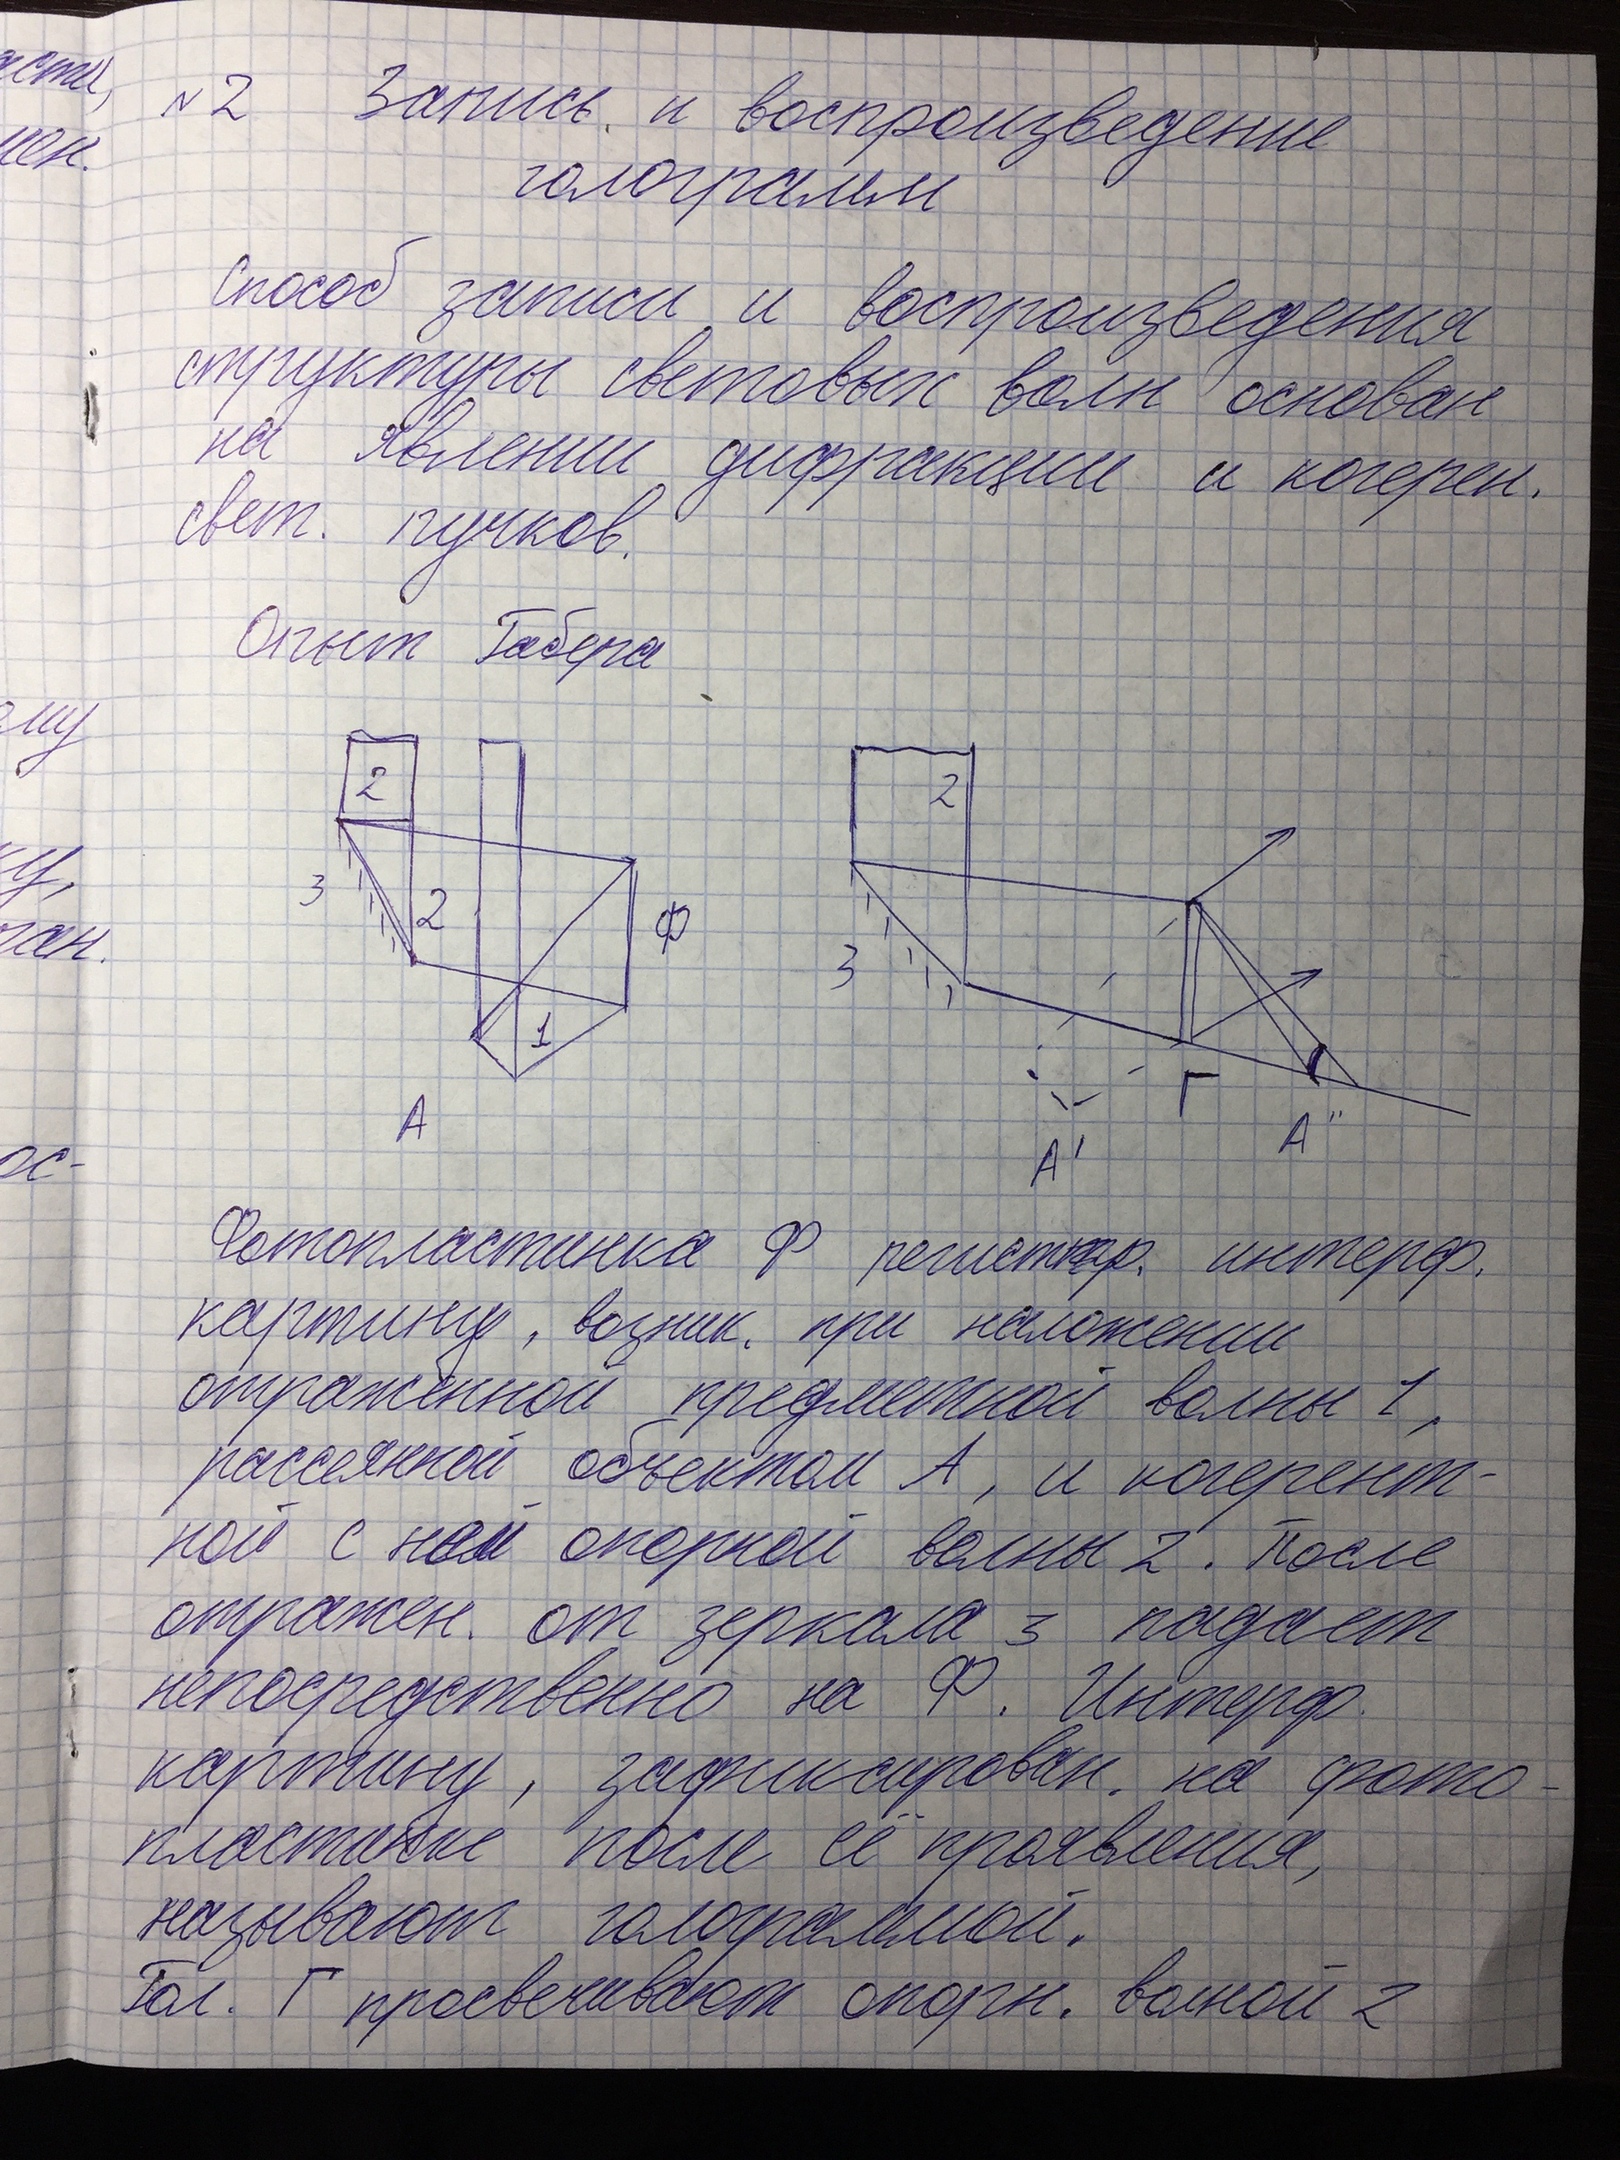 асти,
чен.
ому
ку,
ган.
ос-
№2 Запись и воспроизведение
голограмм
Способ записи и воспроизведения
структуры световых волн основан
на явлении дифракции и когерен.
свет. пучков.
Опыт Габера
2
3
2
Ф
1
А
2
3
Г
А'
А"
Фотопластинка Ф регистрир. интерф.
картину, возник. при наложении
отражённой предметной волны 1,
рассеянной объектом А, и когерент-
ной с ней опорной волны 2. После
отражен. от зеркала 3 падает
непосредственно на Ф. Интерф.
картину, зафиксирован. на фото-
пластинке после её проявления,
называют голограммой.
Гол. Г просвечивают опорн. волной 2